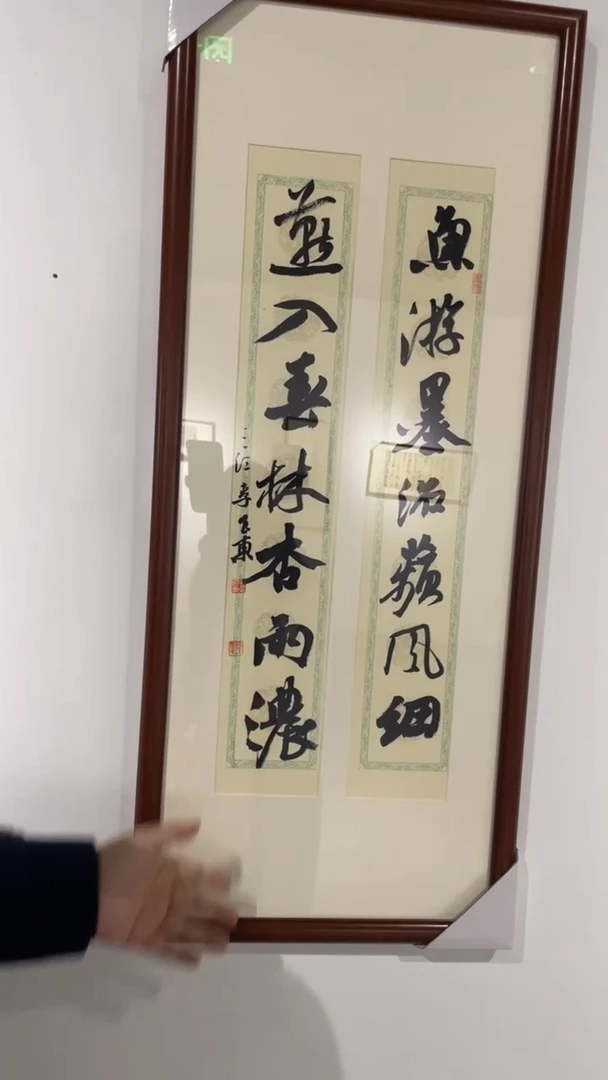 魚游墨沼蘋風細
燕入書林杏雨濃
三江李